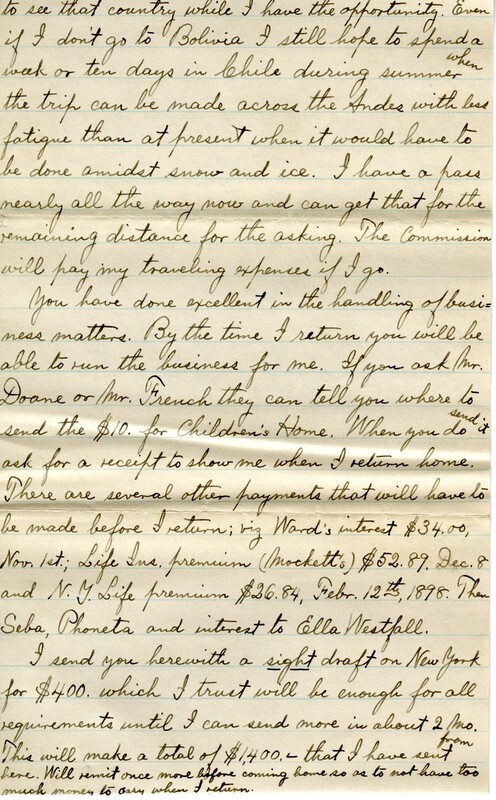 to see that country while I have the opportunity. Even
if I don't go to Bolivia I still hope to spend a
week or ten days in Chile during summer when
the trip can be made across the Andes with less
fatigue than at present when it would have to
be done amidst snow and ice. I have a pass
nearly all the way now and can get that for the
remaining distance for the asking. The Commission
will pay my traveling expenses if I go.
You have done excellent in the handling of busi=
ness matters. By the time I return you will be
able to run the business for me. If you ask Mr.
Doane or Mr. French they can tell you where to
send the $10. for Children's Home. When you do send it
ask for a receipt to show me when I return home.
There are several other payments that will have to
be made before I return; viz Ward's interest $34.00,
Nov. 1st.; Life Ins. premium (Mockett's) $52.89, Dec. 8
and N.Y. Life premium $26.84, Febr. 12th, 1898. Then
Seba, Phoneta and interest to Ella Westfall.
I send you herewith a sight draft on New York
for $400. which I trust will be enough for all
requirements until I can send more in about 2 Mo.
This will make a total of $1,400.- that I have sent from
here. Will remit once more before coming home so as to not have too
much money to cary when I return.